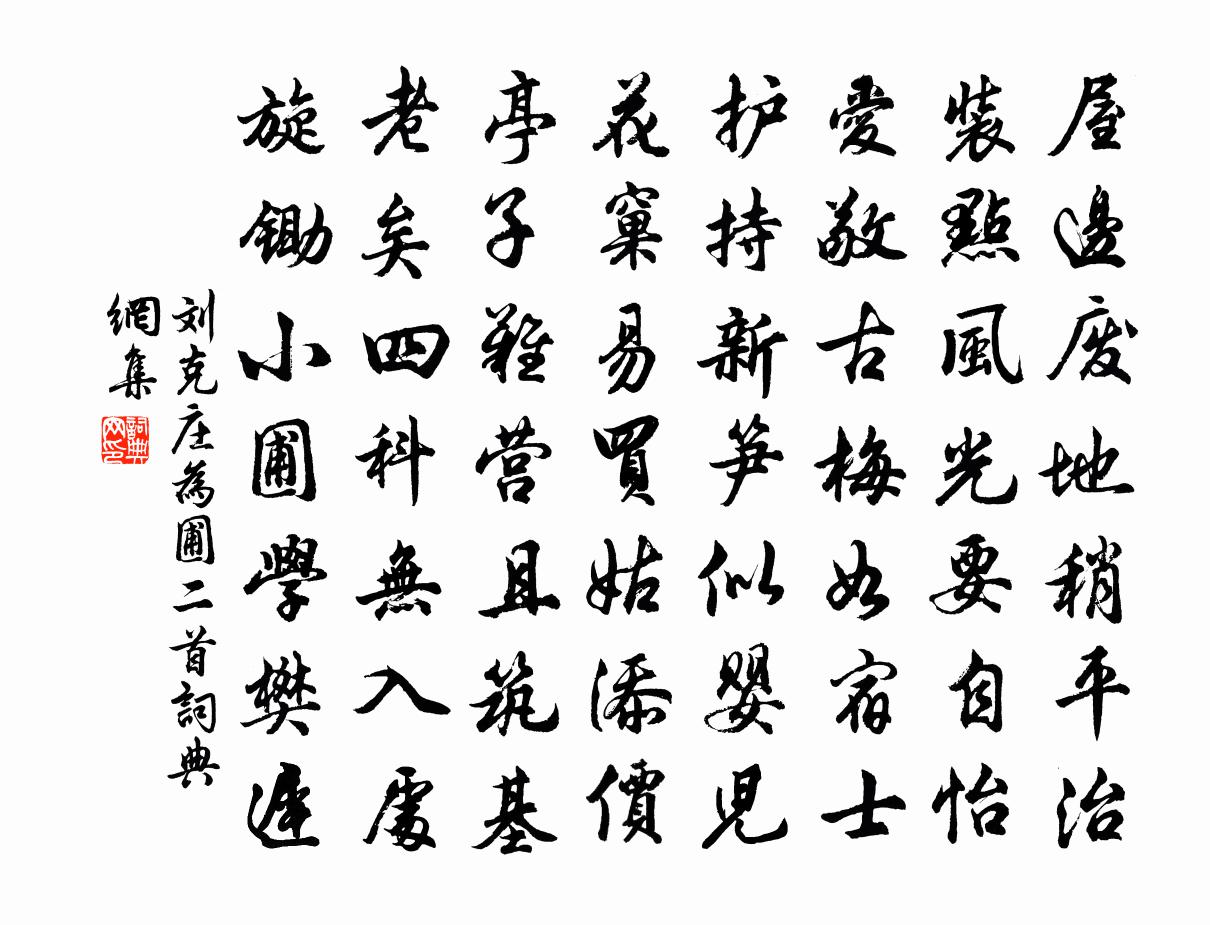 屋邊废地稍平治
裝點風光要自怡
愛敬古梅如宿士
护持新笋似嬰児
花窠易買姑添價
亭子難营且筑基
老矣四科無入處
旋锄小圃學樊遲
刘克庄為圃二首詞典
網集
詞典
网印